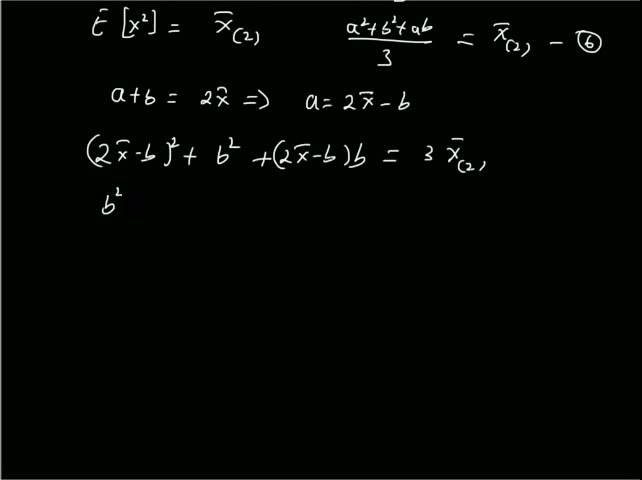 E [x²] = x̄₍₂₎ (a²+b²+ab)/3 = x̄₍₂₎ - ⑥
a+b = 2x̄ => a = 2x̄ - b
(2x̄-b)² + b² + (2x̄-b)b = 3 x̄₍₂₎
b²